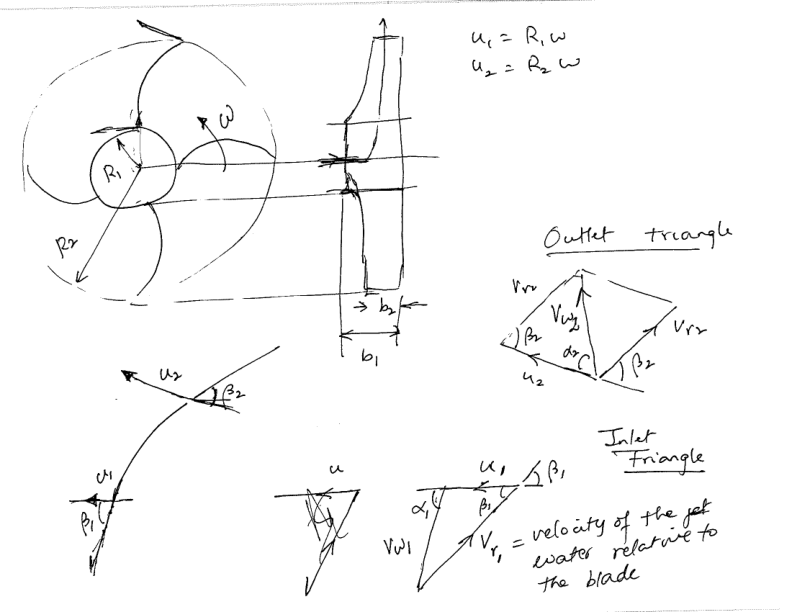 u₁ = R₁ω
u₂ = R₂ω
ω
R₁
R₂
b₂
b₁
Outlet triangle
Vr₂
Vw₂
Vr₂
β₂
α₂
β₂
u₂
u₂
β₂
u₁
β₁
u
Inlet
Triangle
u₁
β₁
α₁
β₁
Vw₁
Vr₁ = velocity of the jet
water relative to
the blade